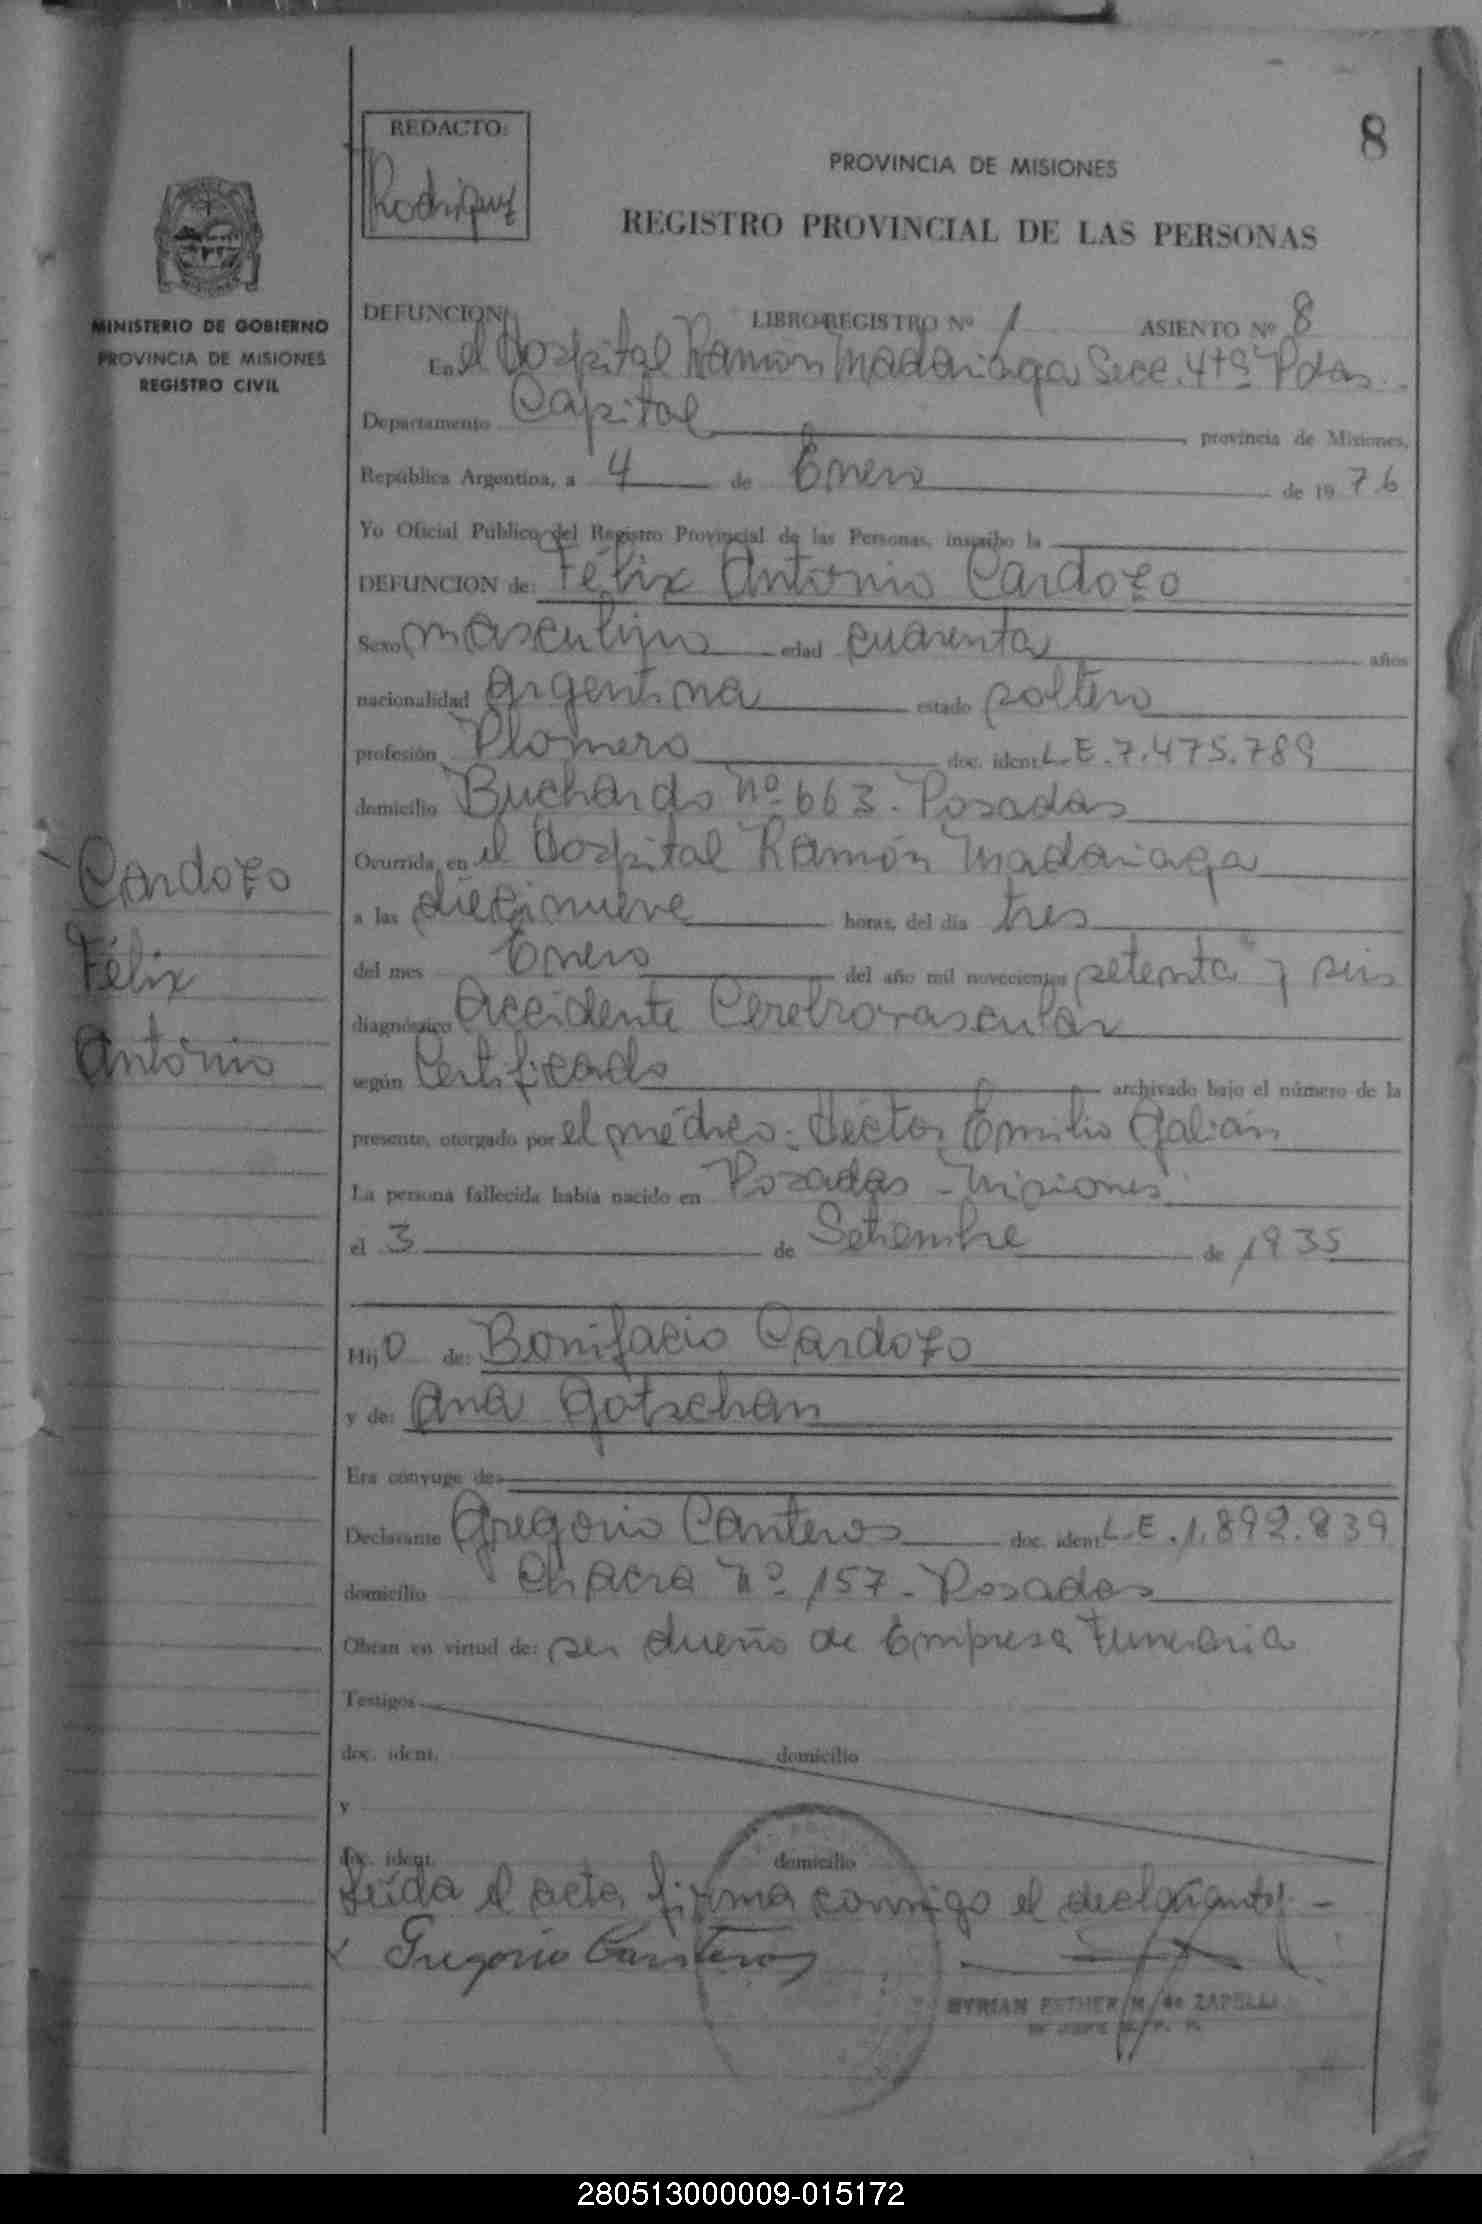 8
REDACTO:
Rodriguez
PROVINCIA DE MISIONES
REGISTRO PROVINCIAL DE LAS PERSONAS
MINISTERIO DE GOBIERNO
PROVINCIA DE MISIONES
REGISTRO CIVIL
DEFUNCION LIBRO-REGISTRO Nº 1 ASIENTO Nº 8
En el Hospital Ramón Madariaga Secc. 4tª Pdas.
Departamento Capital, provincia de Misiones,
República Argentina, a 4 de Enero de 1976
Yo Oficial Público del Registro Provincial de las Personas, inscribo la
DEFUNCION de: Félix Antonio Cardozo
Sexo masculino edad cuarenta años
nacionalidad Argentina estado soltero
profesión Plomero doc. ident. L.E. 7.475.789
domicilio Buchardo Nº 663. Posadas
Ocurrida en el Hospital Ramón Madariaga
a las diecinueve horas, del día tres
del mes Enero del año mil novecientos setenta y seis
diagnóstico Accidente Cerebrovascular
según Certificado archivado bajo el número de la
presente, otorgado por el médico: Héctor Emilio Galián
La persona fallecida había nacido en Posadas - Misiones
el 3 de Setiembre de 1935
Hijo de: Bonifacio Cardozo
y de: Ana Gotschan
Era cónyuge de:
Declarante Gregorio Canteros doc. ident. L.E. 1.892.839
domicilio Chacra Nº 157 - Posadas
Obran en virtud de: ser dueño de Empresa Funeraria
Testigos
doc. ident. domicilio
y
doc. ident. domicilio
Leída el acta, firma conmigo el declarante. -
Gregorio Canteros
MYRIAN ESTHER M. de ZAPELLI
Cardozo
Félix
Antonio
280513000009-015172